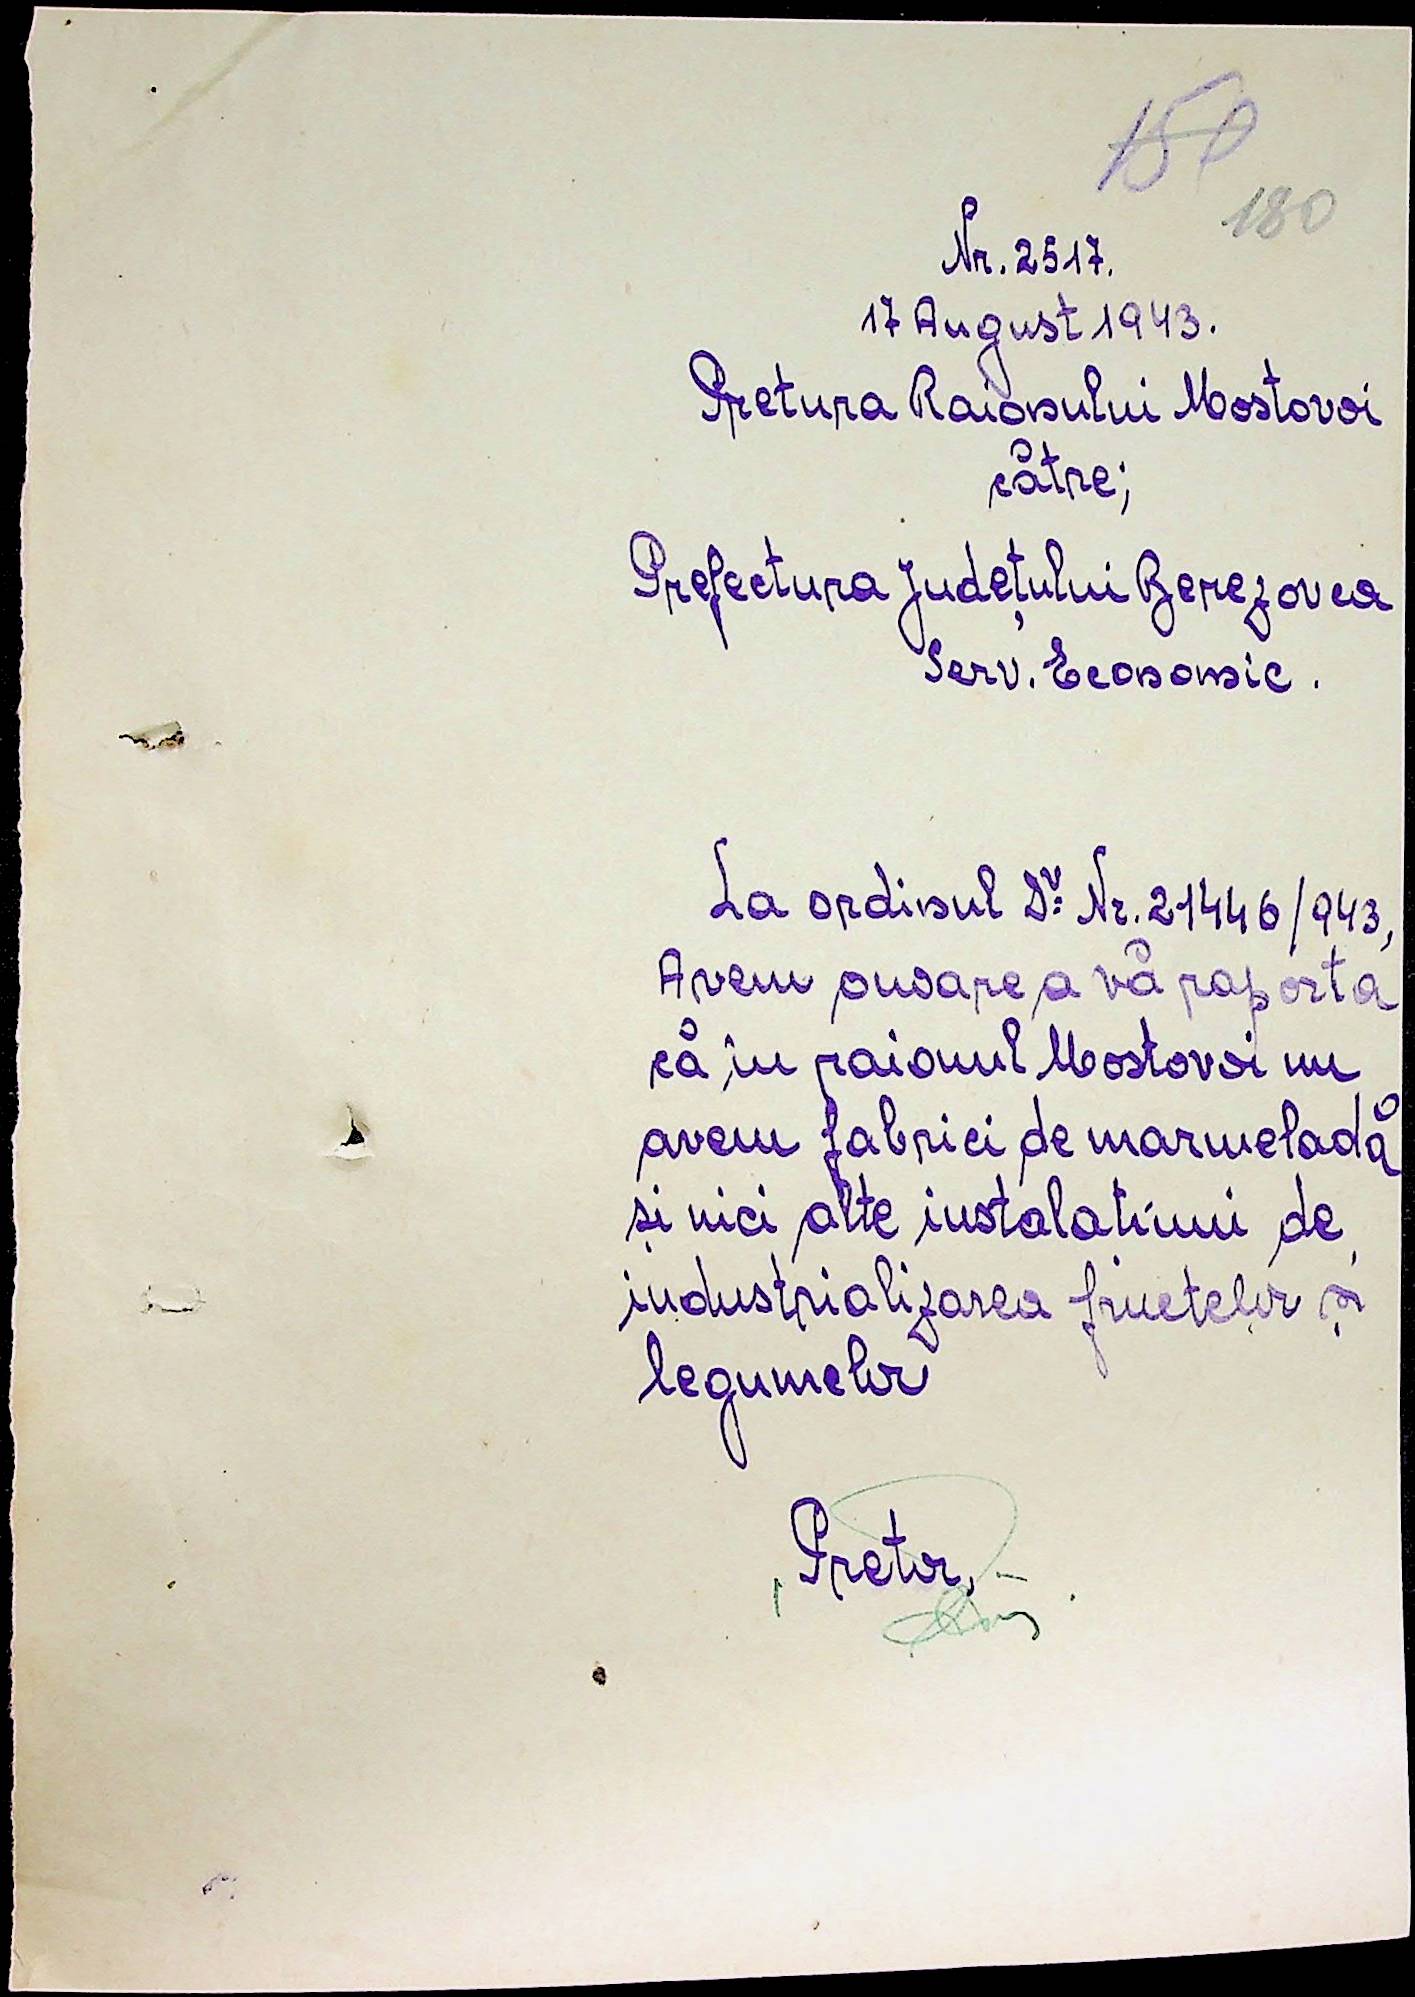 150
180
Nr. 2517.
17 August 1943.
Pretura Raionului Mostovoi
către;
Prefectura Județului Berezovca
Serv. Economic.
La ordinul Dv: Nr. 21446/943,
Avem onoare a vă raporta
că în raionul Mostovoi nu
avem fabrici de marmeladă
și nici alte instalatiuni de
industrializarea fructelor și
legumelor
Pretor,